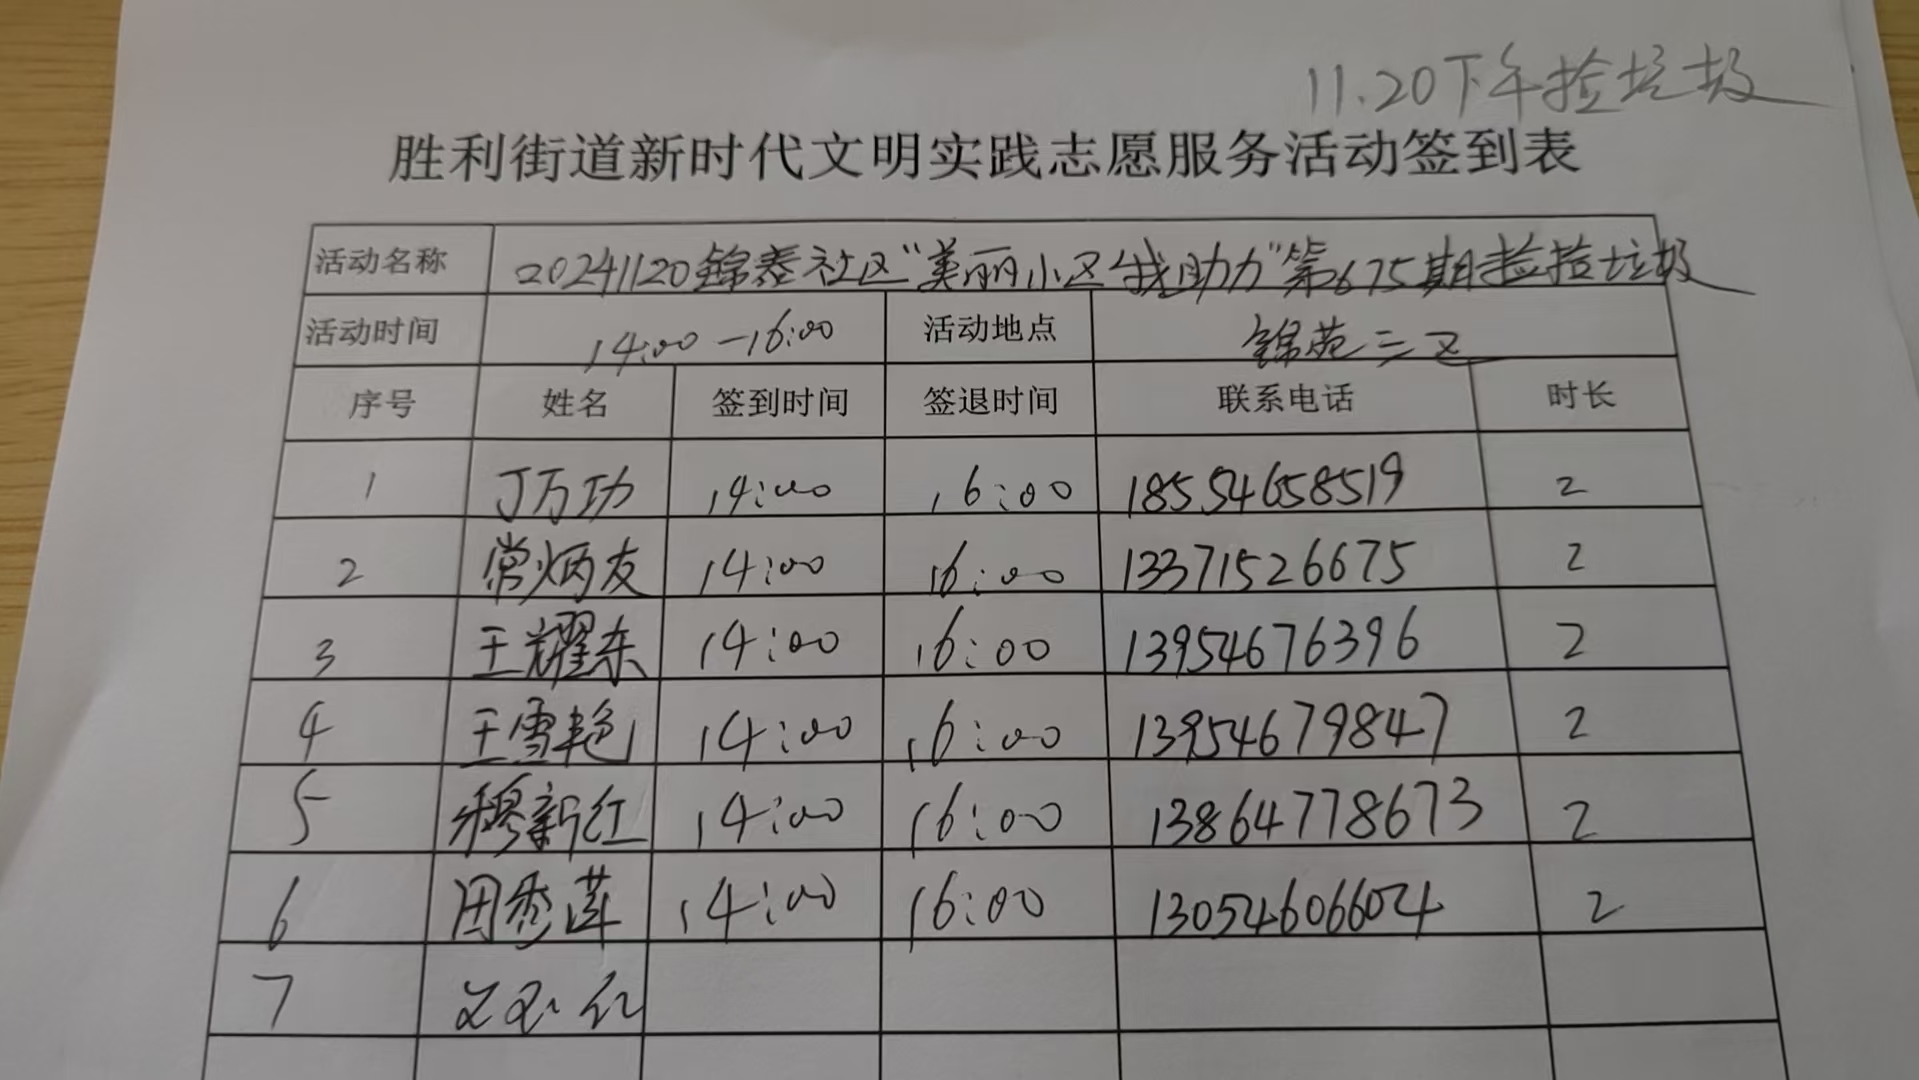 11.20下午捡垃圾
胜利街道新时代文明实践志愿服务活动签到表
活动名称 20241120锦泰社区“美丽小区我助力”第675期捡捡垃圾
活动时间 14:00-16:00 活动地点 锦苑三区
序号 姓名 签到时间 签退时间 联系电话 时长
1 丁万功 14:00 16:00 18554658519 2
2 常炳友 14:00 16:00 13371526675 2
3 王耀东 14:00 16:00 13954676396 2
4 王雪艳 14:00 16:00 13954679847 2
5 穆新红 14:00 16:00 13864778673 2
6 田秀莲 14:00 16:00 13054606604 2
7